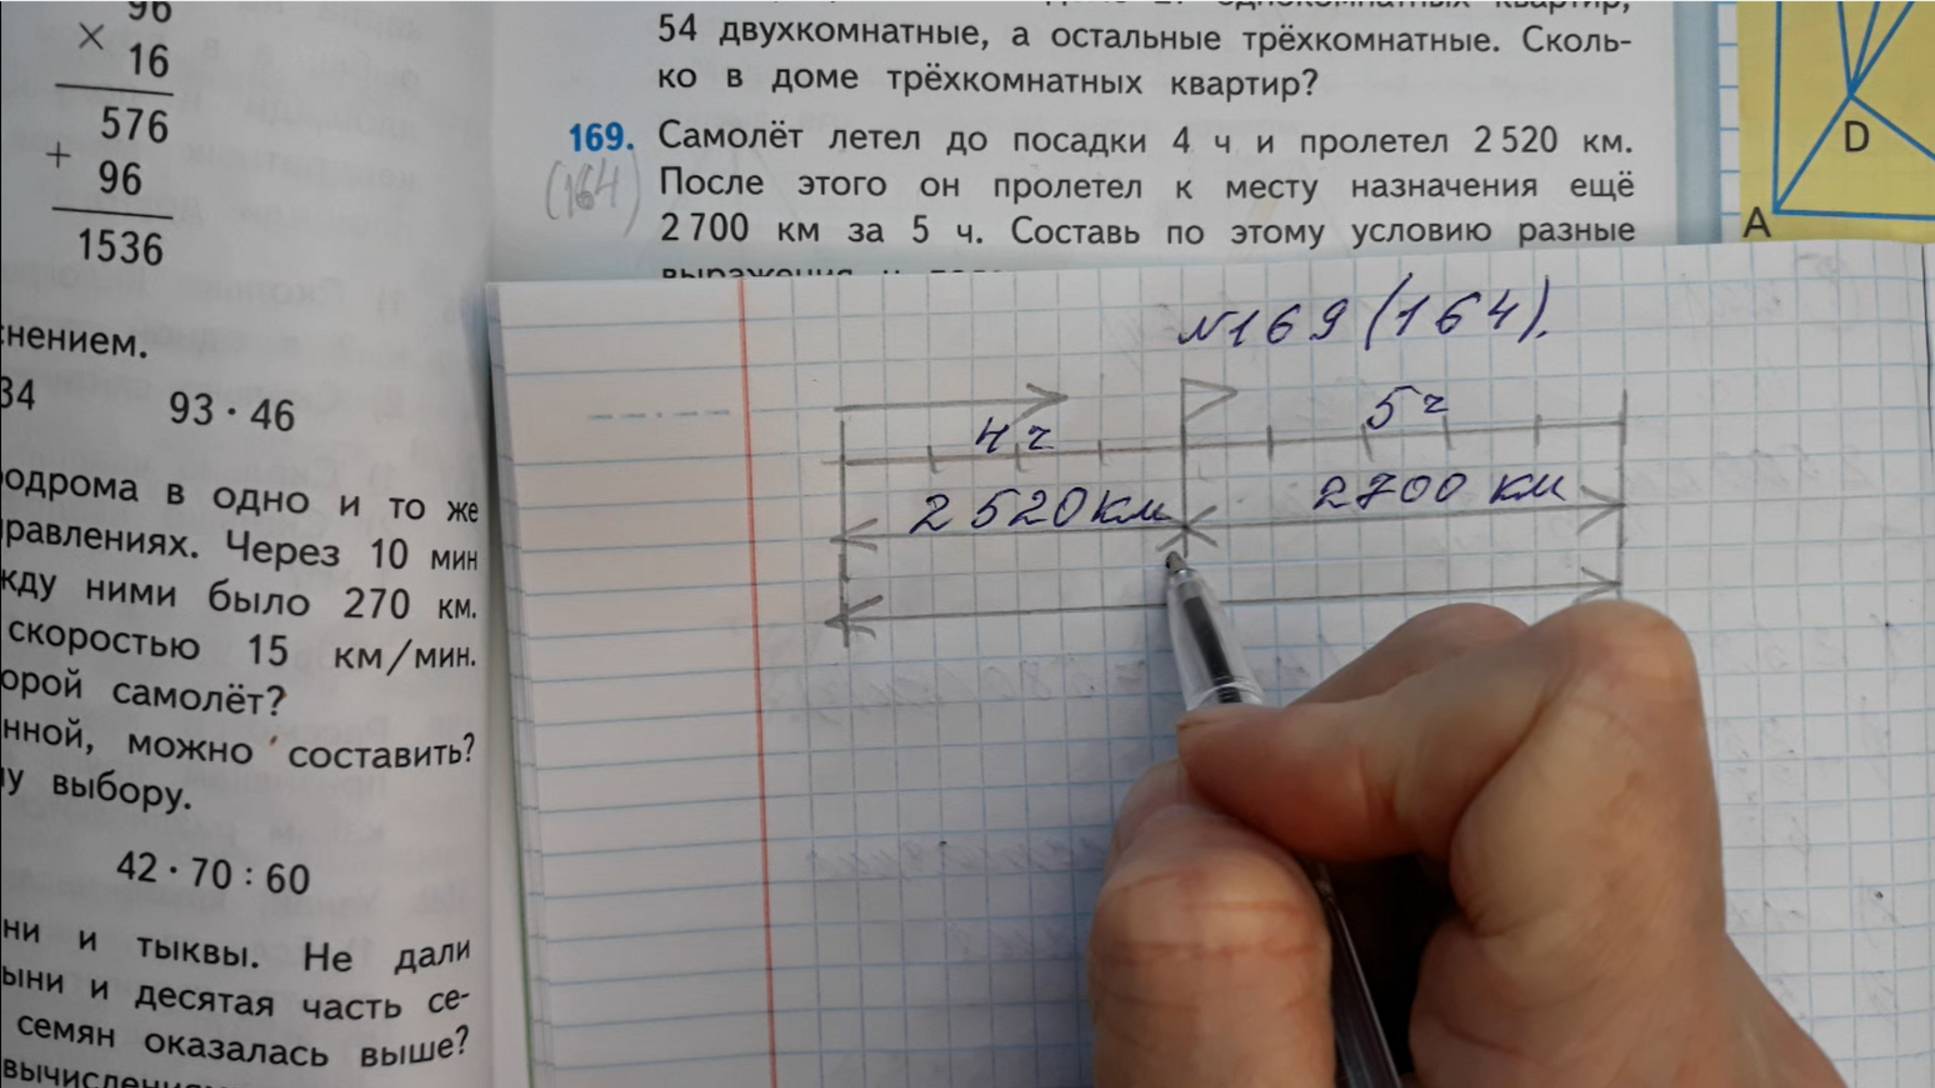 96
× 16
576
+ 96
1536
снением.
34 93 · 46
одрома в одно и то же
равлениях. Через 10 мин
жду ними было 270 км.
скоростью 15 км/мин.
орой самолёт?
нной, можно составить?
у выбору.
42 · 70 : 60
ни и тыквы. Не дали
ыни и десятая часть се-
семян оказалась выше?
вычислени
54 двухкомнатные, а остальные трёхкомнатные. Сколь-
ко в доме трёхкомнатных квартир?
169. Самолёт летел до посадки 4 ч и пролетел 2 520 км.
(164) После этого он пролетел к месту назначения ещё
2 700 км за 5 ч. Составь по этому условию разные
выражения и
D
A
№169 (164).
4 ч 5 ч
2 520 км 2700 км